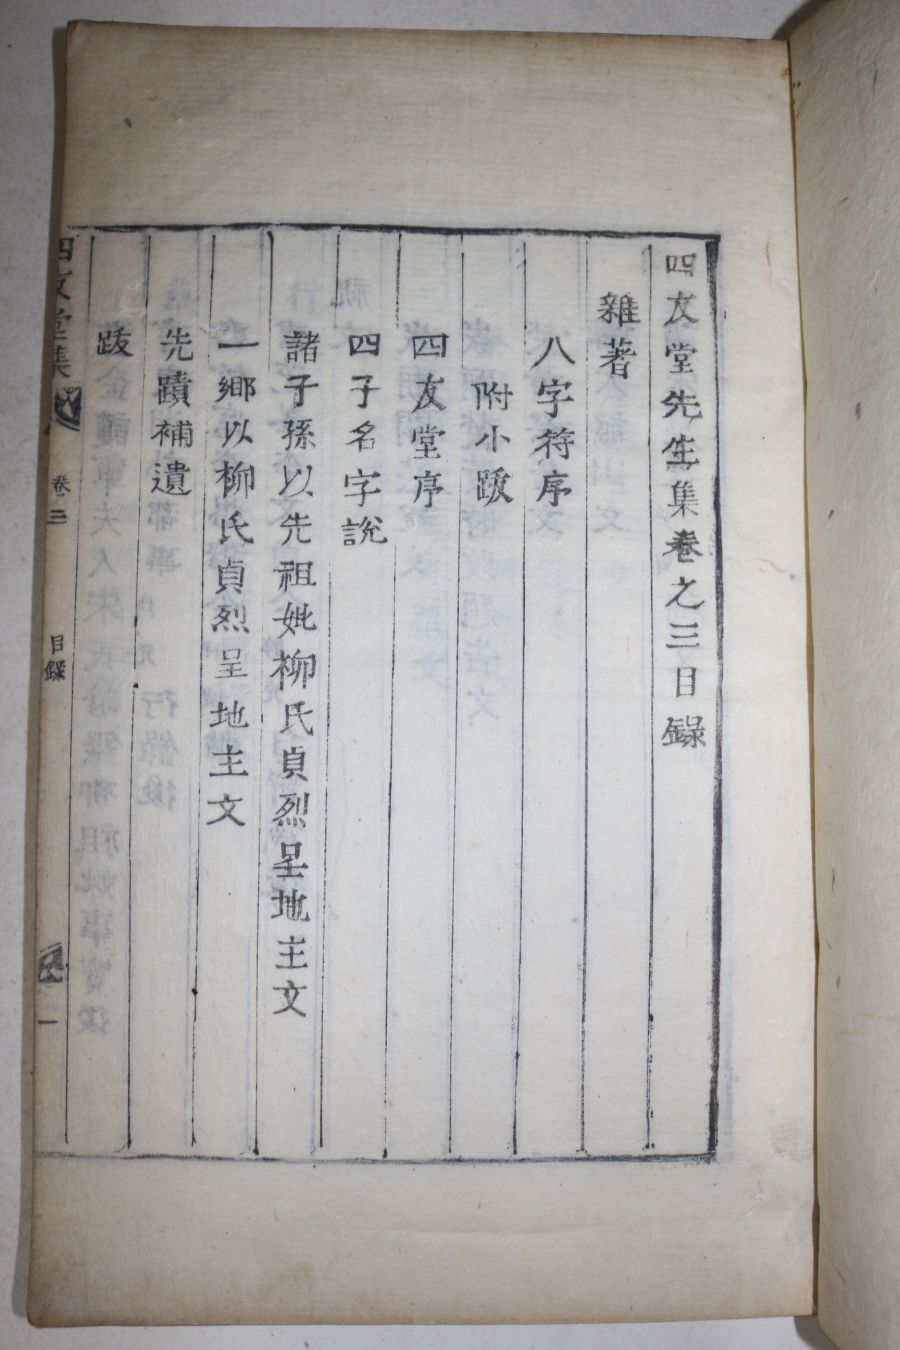 四友堂先生集卷之三目錄
雜著
八字符序
附小跋
四友堂序
四子名字說
諸子孫以先祖妣柳氏貞烈呈地主文
一鄉以柳氏貞烈呈地主文
先蹟補遺
跋
四友堂集
卷三
目錄
一